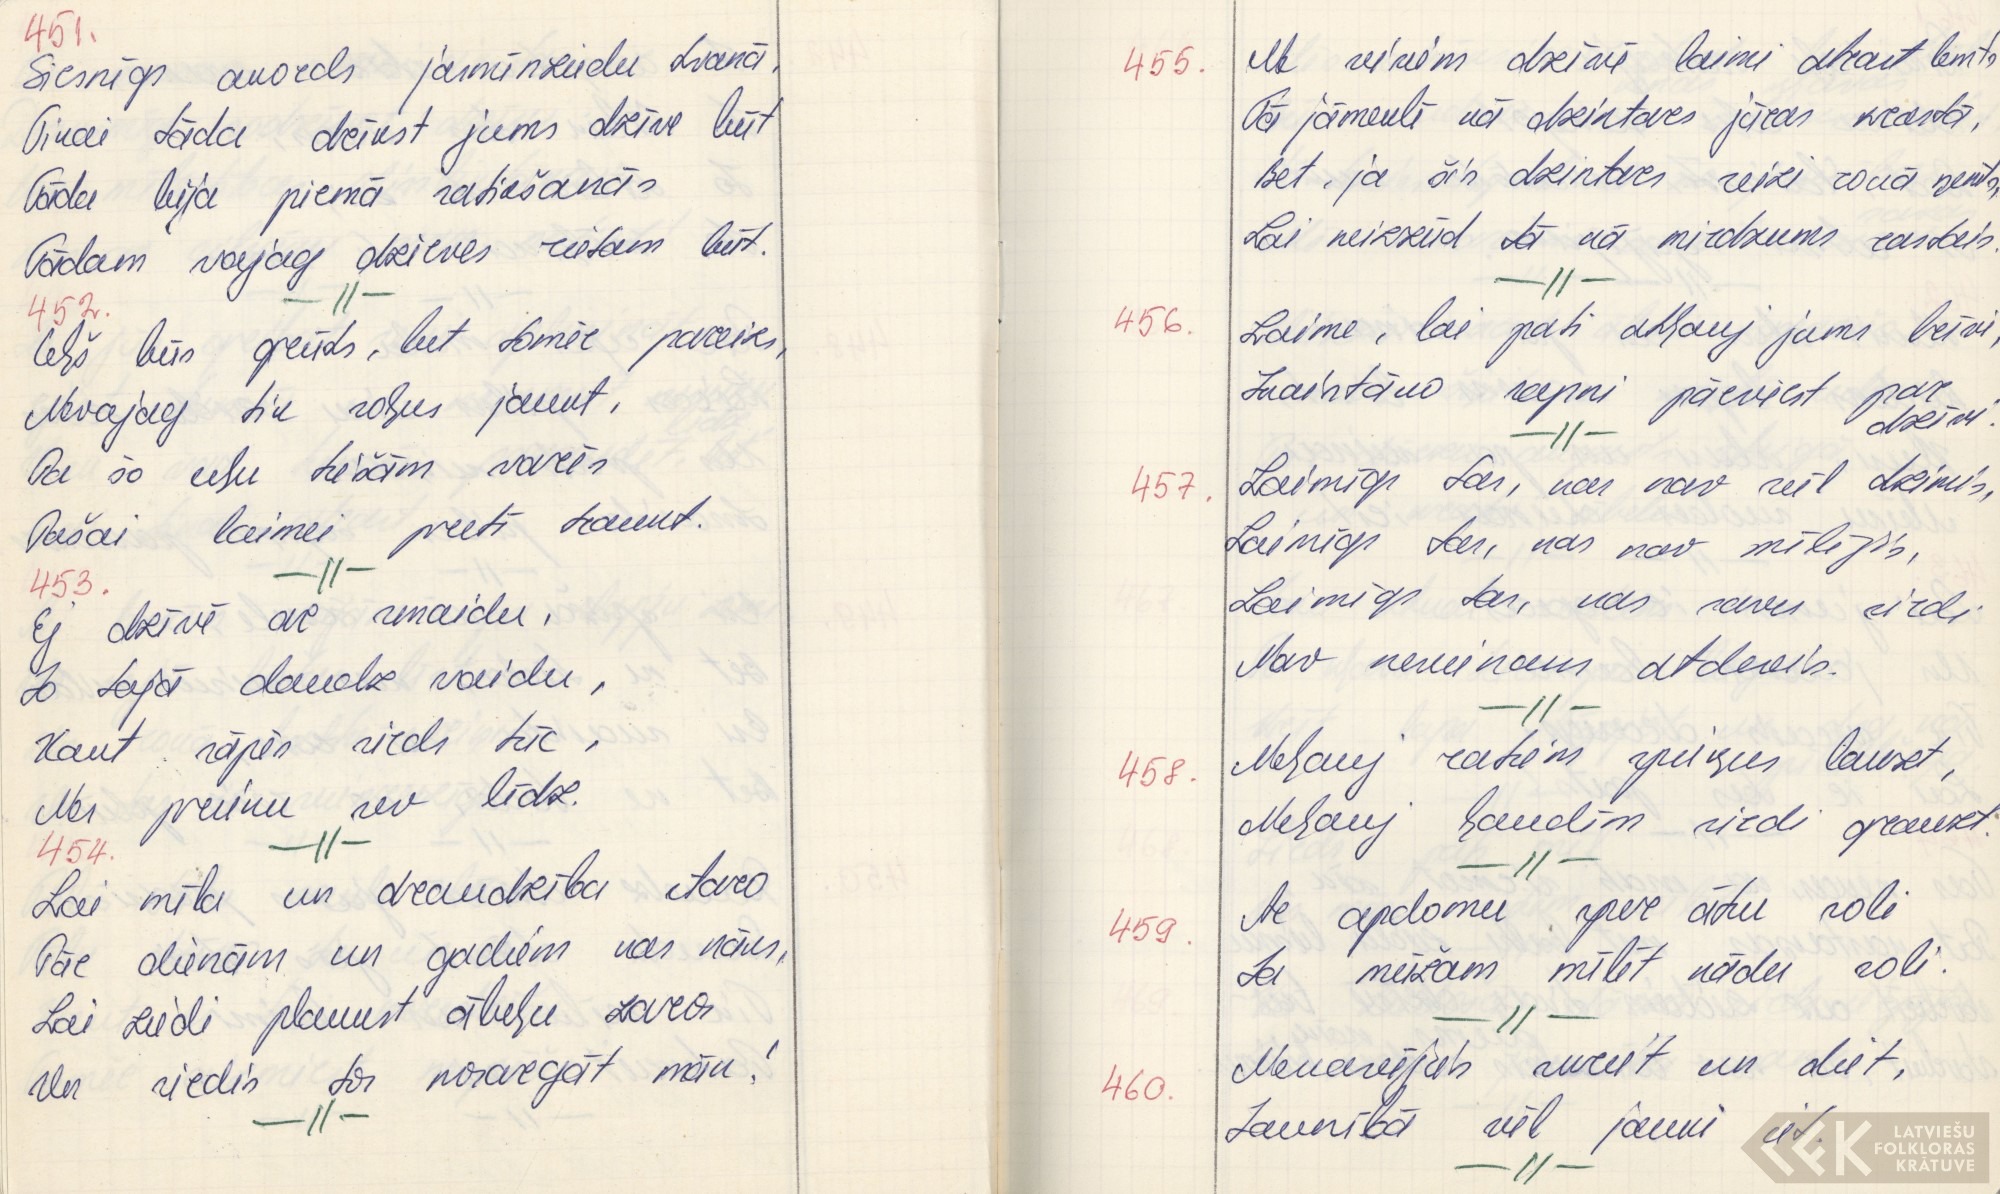 451.
Siesnīgs akords jasmīnziedu tvanā,
Tikai tāda dzimst jums dzīve būt
Tāda bija pirmā satikšanās
Tādam vajag dzīves rietam būt.
—//—
452.
Ceļš būs grūts, bet tomēr pareizs,
Nevajag tik rokas ļaut,
Pa šo ceļu tiešām varēs
Pašai laimei pretī traukt.
—//—
453.
Ej dzīvē ar smaidu,
Jo tajā daudz vaidu,
Kaut sāpēs sirds tīc,
Nes prieku sev līdz.
—//—
454.
Lai mīla un draudzība staro
Pār dienām un gadiem kas nāks,
Lai ziedi plaukst ābeļu zaros
Un sirdis tos nosargāt māk!
—//—
455. Ne visiem dzīvē laimi atrast lemts
Tā jāmeklē kā dzintars jūras krastā,
Bet, ja šis dzintars reizi rokā ņemts,
Lai neizzūd tā kā mirdzums rastais.
—//—
456. Laime, lai pati atļauj jums brīvi,
Skaistāko sapni pārvērst par
dzīvi.
—//—
457. Laimīgs tas, kas nav vēl dzimis,
Laimīgs tas, kas nav mīlējis,
Laimīgs tas, kas savu sirdi
Nav nevienam atdevis.
—//—
458. Neļauj ratiem spieķus lauzt,
Neļauj ļaudīm sirdi grauzt.
—//—
459. Ar apdomu sper ātru soli
Ja neizām mīlēt kādu soli.
—//—
460. Nekavējies skriet un diet,
Jaunībā vēl jauki iet.
—//—
LATVIEŠU
FOLKLORAS
KRĀTUVE